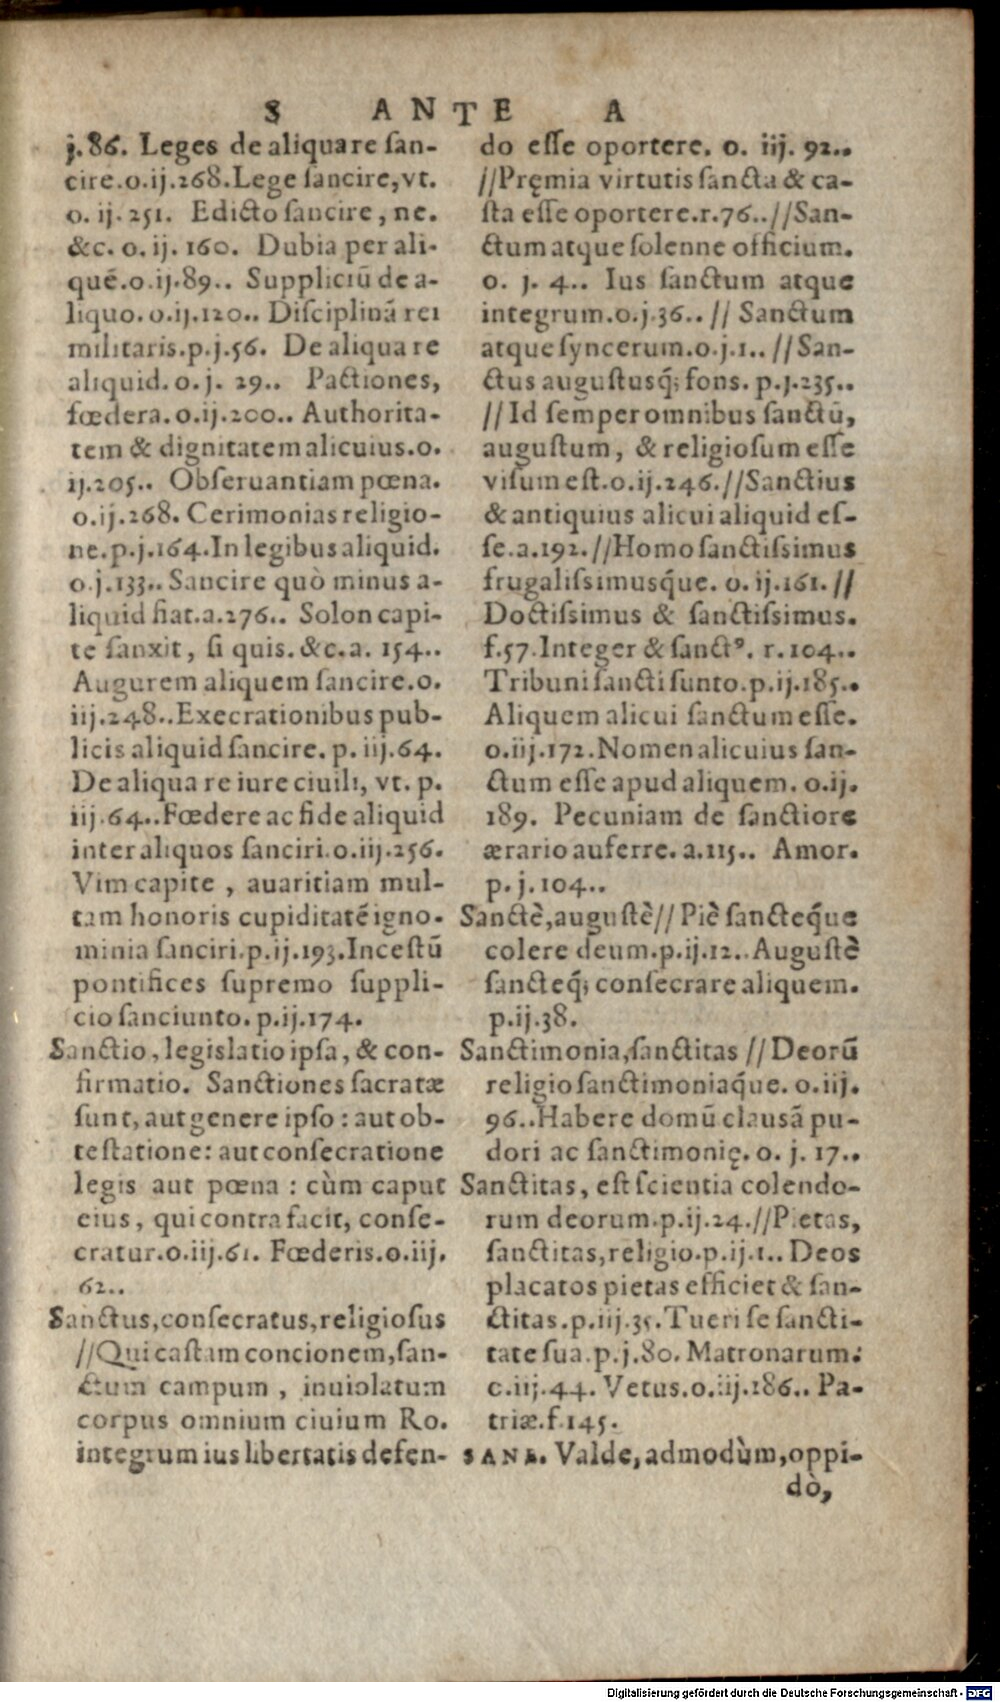 S ANTE A
j.86. Leges de aliqua re ſan-
cire.o.ij.268.Lege ſancire,vt.
o. ij. 251. Edicto ſancire, ne.
&c. o. ij. 160. Dubia per ali-
quē.o.ij.89.. Suppliciū de a-
liquo.o.ij.120.. Diſciplinā rei
militaris.p.j.56. De aliqua re
aliquid. o. j. 29.. Pactiones,
fœdera.o.ij.200.. Authorita-
tem & dignitatem alicuius.o.
ij.205.. Obſeruantiam pœna.
o.ij.268. Cerimonias religio-
ne.p.j.164.In legibus aliquid.
o.j.133.. Sancire quò minus a-
liquid fiat.a.276.. Solon capi-
te ſanxit, ſi quis. &c.a. 154..
Augurem aliquem ſancire.o.
iij.248..Execrationibus pub-
licis aliquid ſancire. p. iij.64.
De aliqua re iure ciuili, vt. p.
iij.64..Fœdere ac fide aliquid
inter aliquos ſanciri.o.iij.256.
Vim capite , auaritiam mul-
tam honoris cupiditatē igno-
minia ſanciri.p.ij.193.Inceſtū
pontifices ſupremo ſuppli-
cio ſanciunto.p.ij.174.
Sanctio, legislatio ipſa, & con-
firmatio. Sanctiones ſacratæ
ſunt, aut genere ipſo : aut ob-
teſtatione: aut conſecratione
legis aut pœna : cùm caput
eius, qui contra facit, conſe-
cratur.o.iij.61. Fœderis.o.iij.
62..
Sanctus,conſecratus,religioſus
//Qui caſtam concionem,ſan-
ctum campum , inuiolatum
corpus omnium ciuium Ro.
integrum ius libertatis defen-
do eſſe oportere. o. iij. 92..
//Pręmia virtutis ſancta & ca-
ſta eſſe oportere.r.76..//San-
ctum atque ſolenne officium.
o. j. 4.. Ius ſanctum atque
integrum.o.j.36.. // Sanctum
atque ſyncerum.o.j.1.. //San-
ctus auguſtusq́; fons. p.j.235..
//Id ſemper omnibus ſanctū,
auguſtum, & religioſum eſſe
viſum eſt.o.ij.246.//Sanctius
& antiquius alicui aliquid eſ-
ſe.a.192.//Homo ſanctiſsimus
frugaliſsimusq́ue. o. ij.161. //
Doctiſsimus & ſanctiſsimus.
f.57.Integer & ſanctꝰ. r.104..
Tribuni ſancti ſunto.p.ij.185..
Aliquem alicui ſanctum eſſe.
o.iij.172.Nomen alicuius ſan-
ctum eſſe apud aliquem. o.ij.
189. Pecuniam de ſanctiore
ærario auferre. a.115.. Amor.
p. j.104..
Sanctè,auguſtè// Piè ſancteq́ue
colere deum.p.ij.12.. Auguſtè
ſancteq́; conſecrare aliquem.
p.ij.38.
Sanctimonia,ſanctitas // Deorū
religio ſanctimoniaq́ue. o.iij.
96..Habere domū clauſā pu-
dori ac ſanctimonię. o. j. 17..
Sanctitas, eſt ſcientia colendo-
rum deorum.p.ij.24.//Pietas,
ſanctitas,religio.p.ij.1.. Deos
placatos pietas efficiet & ſan-
ctitas.p.iij.35.Tueri ſe ſancti-
tate ſua.p.j.80. Matronarum.
c.iij.44. Vetus.o.iij.186.. Pa-
triæ.f.145.
SANE. Valde,admodùm,oppi-
dò,
Digitalisierung gefördert durch die Deutsche Forschungsgemeinschaft - DFG